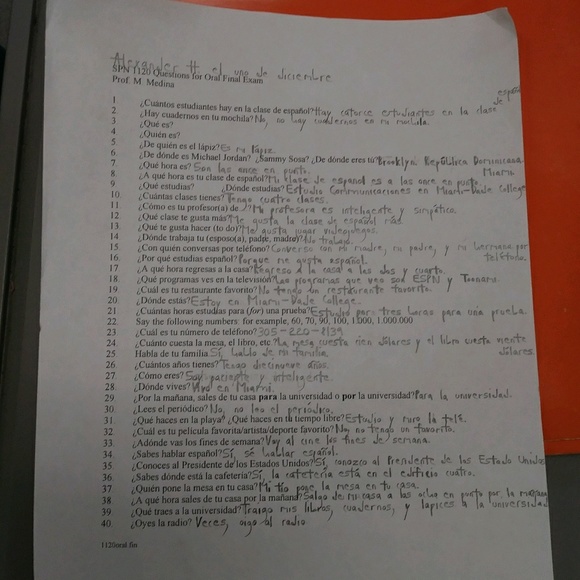 Alexander H el uno de diciembre
SPN 1120 Questions for Oral Final Exam
Prof. M. Medina
español
1. ¿Cuántos estudiantes hay en la clase de español? Hay catorce estudiantes en la clase de
2. ¿Hay cuadernos en tu mochila? No, no hay cuadernos en mi mochila.
3. ¿Qué es?
4. ¿Quién es?
5. ¿De quién es el lápiz? Es mi lápiz.
6. ¿De dónde es Michael Jordan? ¿Sammy Sosa? ¿De dónde eres tú? Brooklyn; República Dominicana
Miami.
7. ¿Qué hora es? Son las once en punto.
8. ¿A qué hora es tu clase de español? Mi clase de español es a las once en punto.
9. ¿Qué estudias? ¿Dónde estudias? Estudio Communicaciones en Miami-Dade College
10. ¿Cuántas clases tienes? Tengo cuatro clases.
11. ¿Cómo es tu profesor(a) de ..? Mi profesora es inteligente y simpática.
12. ¿Qué clase te gusta más? Me gusta la clase de español más.
13. ¿Qué te gusta hacer (to do)? Me gusta jugar videojuegos.
14. ¿Dónde trabaja tu (esposo(a), padre, madre)? No trabajo.
15. ¿Con quién conversas por teléfono? Converso con mi madre, mi padre, y mi hermana por
teléfono.
16. ¿Por qué estudias español? Porque me gusta español.
17. ¿A qué hora regresas a la casa? Regreso a la casa a las dos y cuarto.
18. ¿Qué programas ves en la televisión? Los programas que veo son ESPN y Toonami.
19. ¿Cuál es tu restaurante favorito? No tengo un restaurante favorito.
20. ¿Dónde estás? Estoy en Miami-Dade College.
21. ¿Cuántas horas estudias para (for) una prueba? Estudio por tres horas para una prueba.
22. Say the following numbers for example, 60, 70, 90, 100, 1.000, 1.000.000
23. ¿Cuál es tu número de teléfono? 305-220-8139
24. ¿Cuánto cuesta la mesa, el libro, etc.? La mesa cuesta cien dólares y el libro cuesta veinte
dólares.
25. Habla de tu familia Sí, hablo de mi familia.
26. ¿Cuántos años tienes? Tengo diecinueve años.
27. ¿Cómo eres? Soy paciente y inteligente.
28. ¿Dónde vives? Vivo en Miami.
29. ¿Por la mañana, sales de tu casa para la universidad o por la universidad? Para la universidad.
30. ¿Lees el periódico? No, no leo el periódico.
31. ¿Qué haces en la playa? ¿Qué haces en tu tiempo libre? Estudio y miro la tele.
32. ¿Cuál es tu película favorita/artista/deporte favorito? No, no tengo un favorito.
33. ¿Adónde vas los fines de semana? Voy al cine los fines de semana.
34. ¿Sabes hablar español? Sí, sé hablar español.
35. ¿Conoces al Presidente de los Estados Unidos? Sí, conozco al Presidente de los Estado Unidos
36. ¿Sabes dónde está la cafetería? Sí, la cafetería está en el edificio cuatro.
37. ¿Quién pone la mesa en tu casa? Mi tío pone la mesa en tu casa.
38. ¿A qué hora sales de tu casa por la mañana? Salgo de mi casa a las ocho en punto por la mañana
39. ¿Qué traes a la universidad? Traigo mis libros, cuadernos, y lápices a la universidad
40. ¿Oyes la radio? Veces, oigo al radio
1120oral.fin